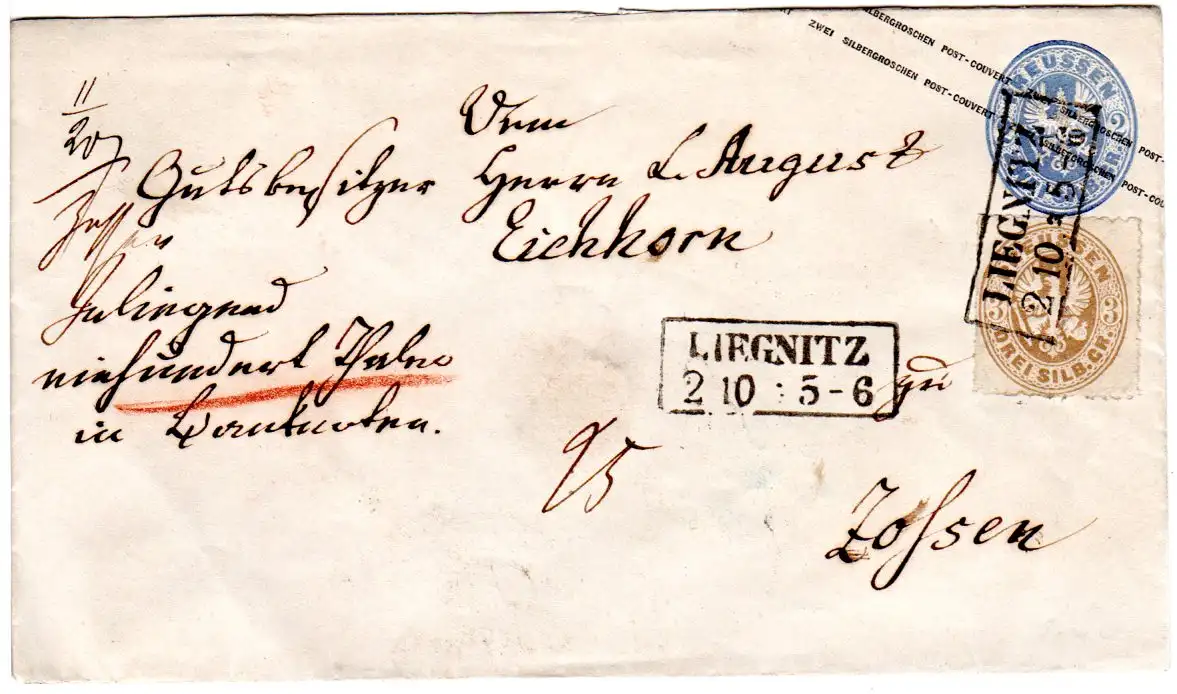 ZWEI SILBERGROSCHEN POST-COUVERT
PREUSSEN
LIEGNITZ
2 10 5-6
PREUSSEN
3 3
DREI SILB. GR.
11
20
Zossen
Dem
Gutsbesitzer Herrn L. August
Eichhorn
Inliegend
einhundert Thaler
in Banknoten.
LIEGNITZ
2 10 : 5-6
zu
Zossen